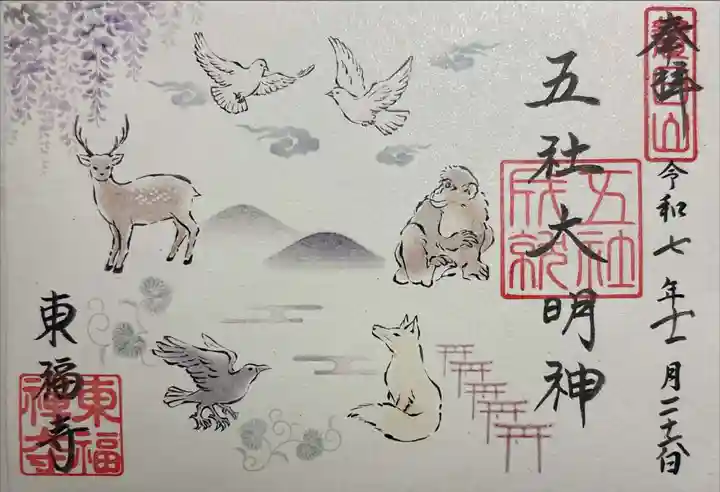 奉拝
令和七年十一月二十六日
五社大明神
五社
成就
東福寺
東福
禅寺